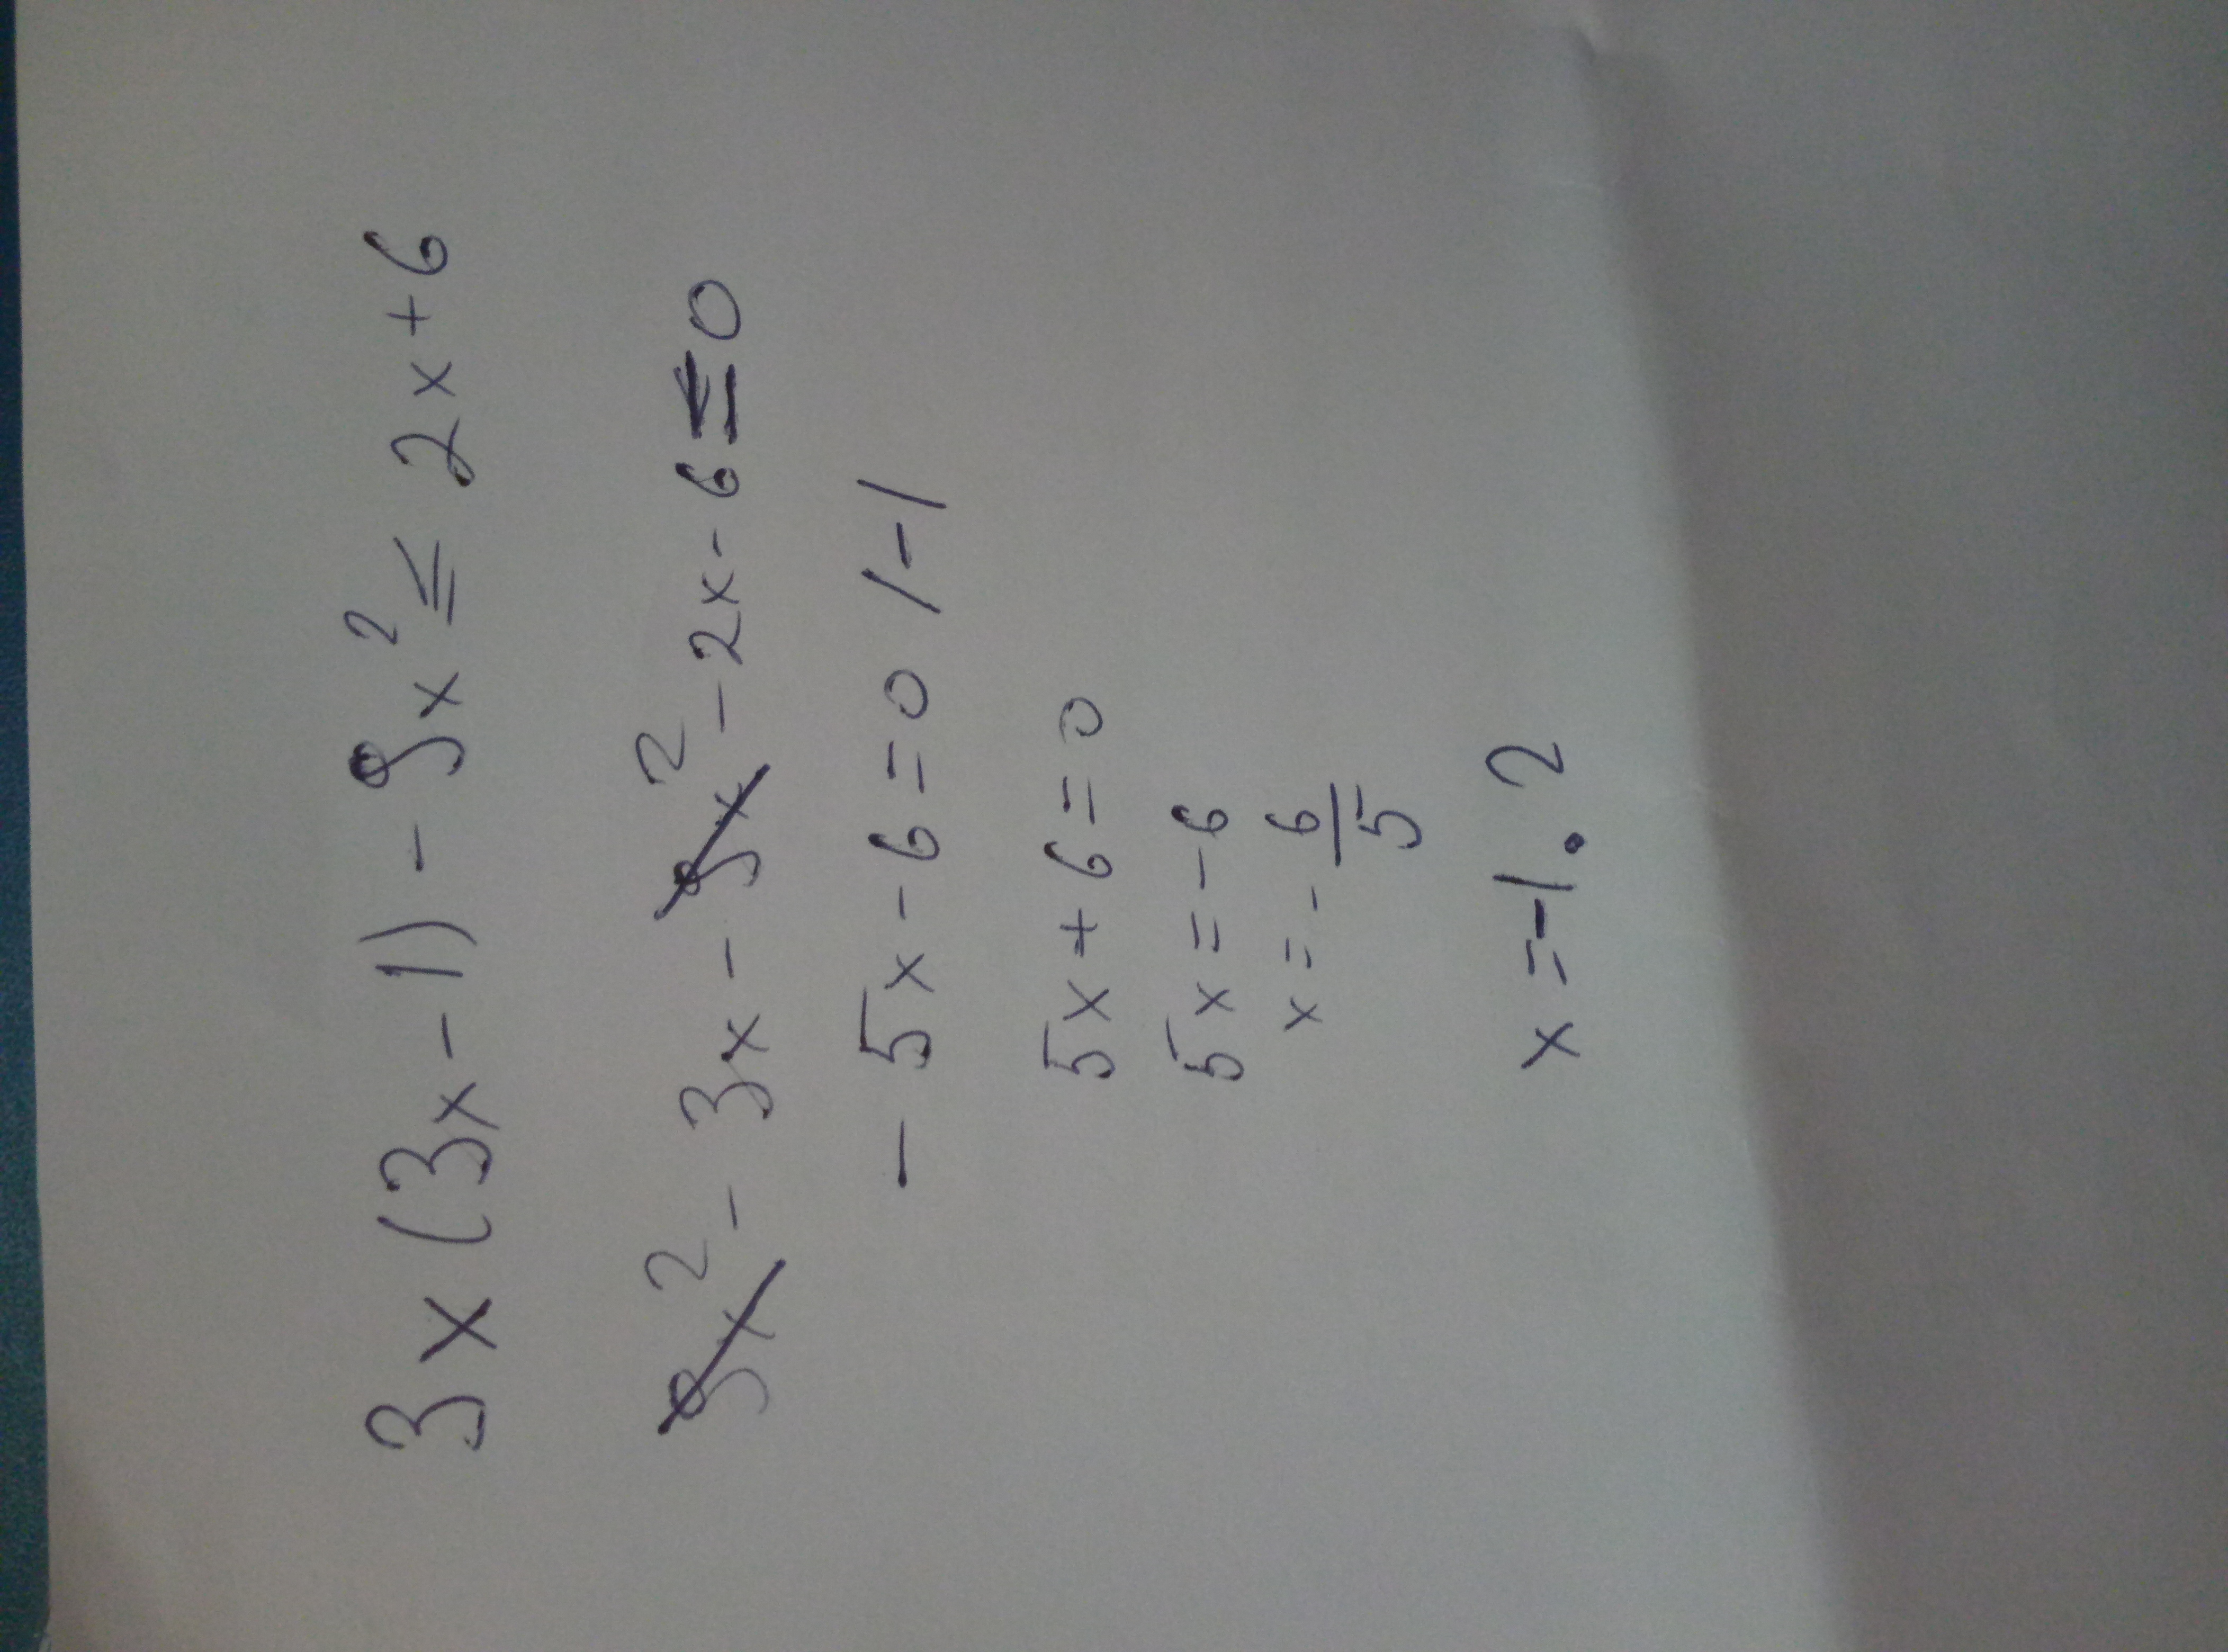 3x(3x-1)-9x²≤2x+6
9x²-3x-9x²-2x-6≤0
-5x-6=0 /-1
5x+6=0
5x=-6
x=-6/5
x=-1.2